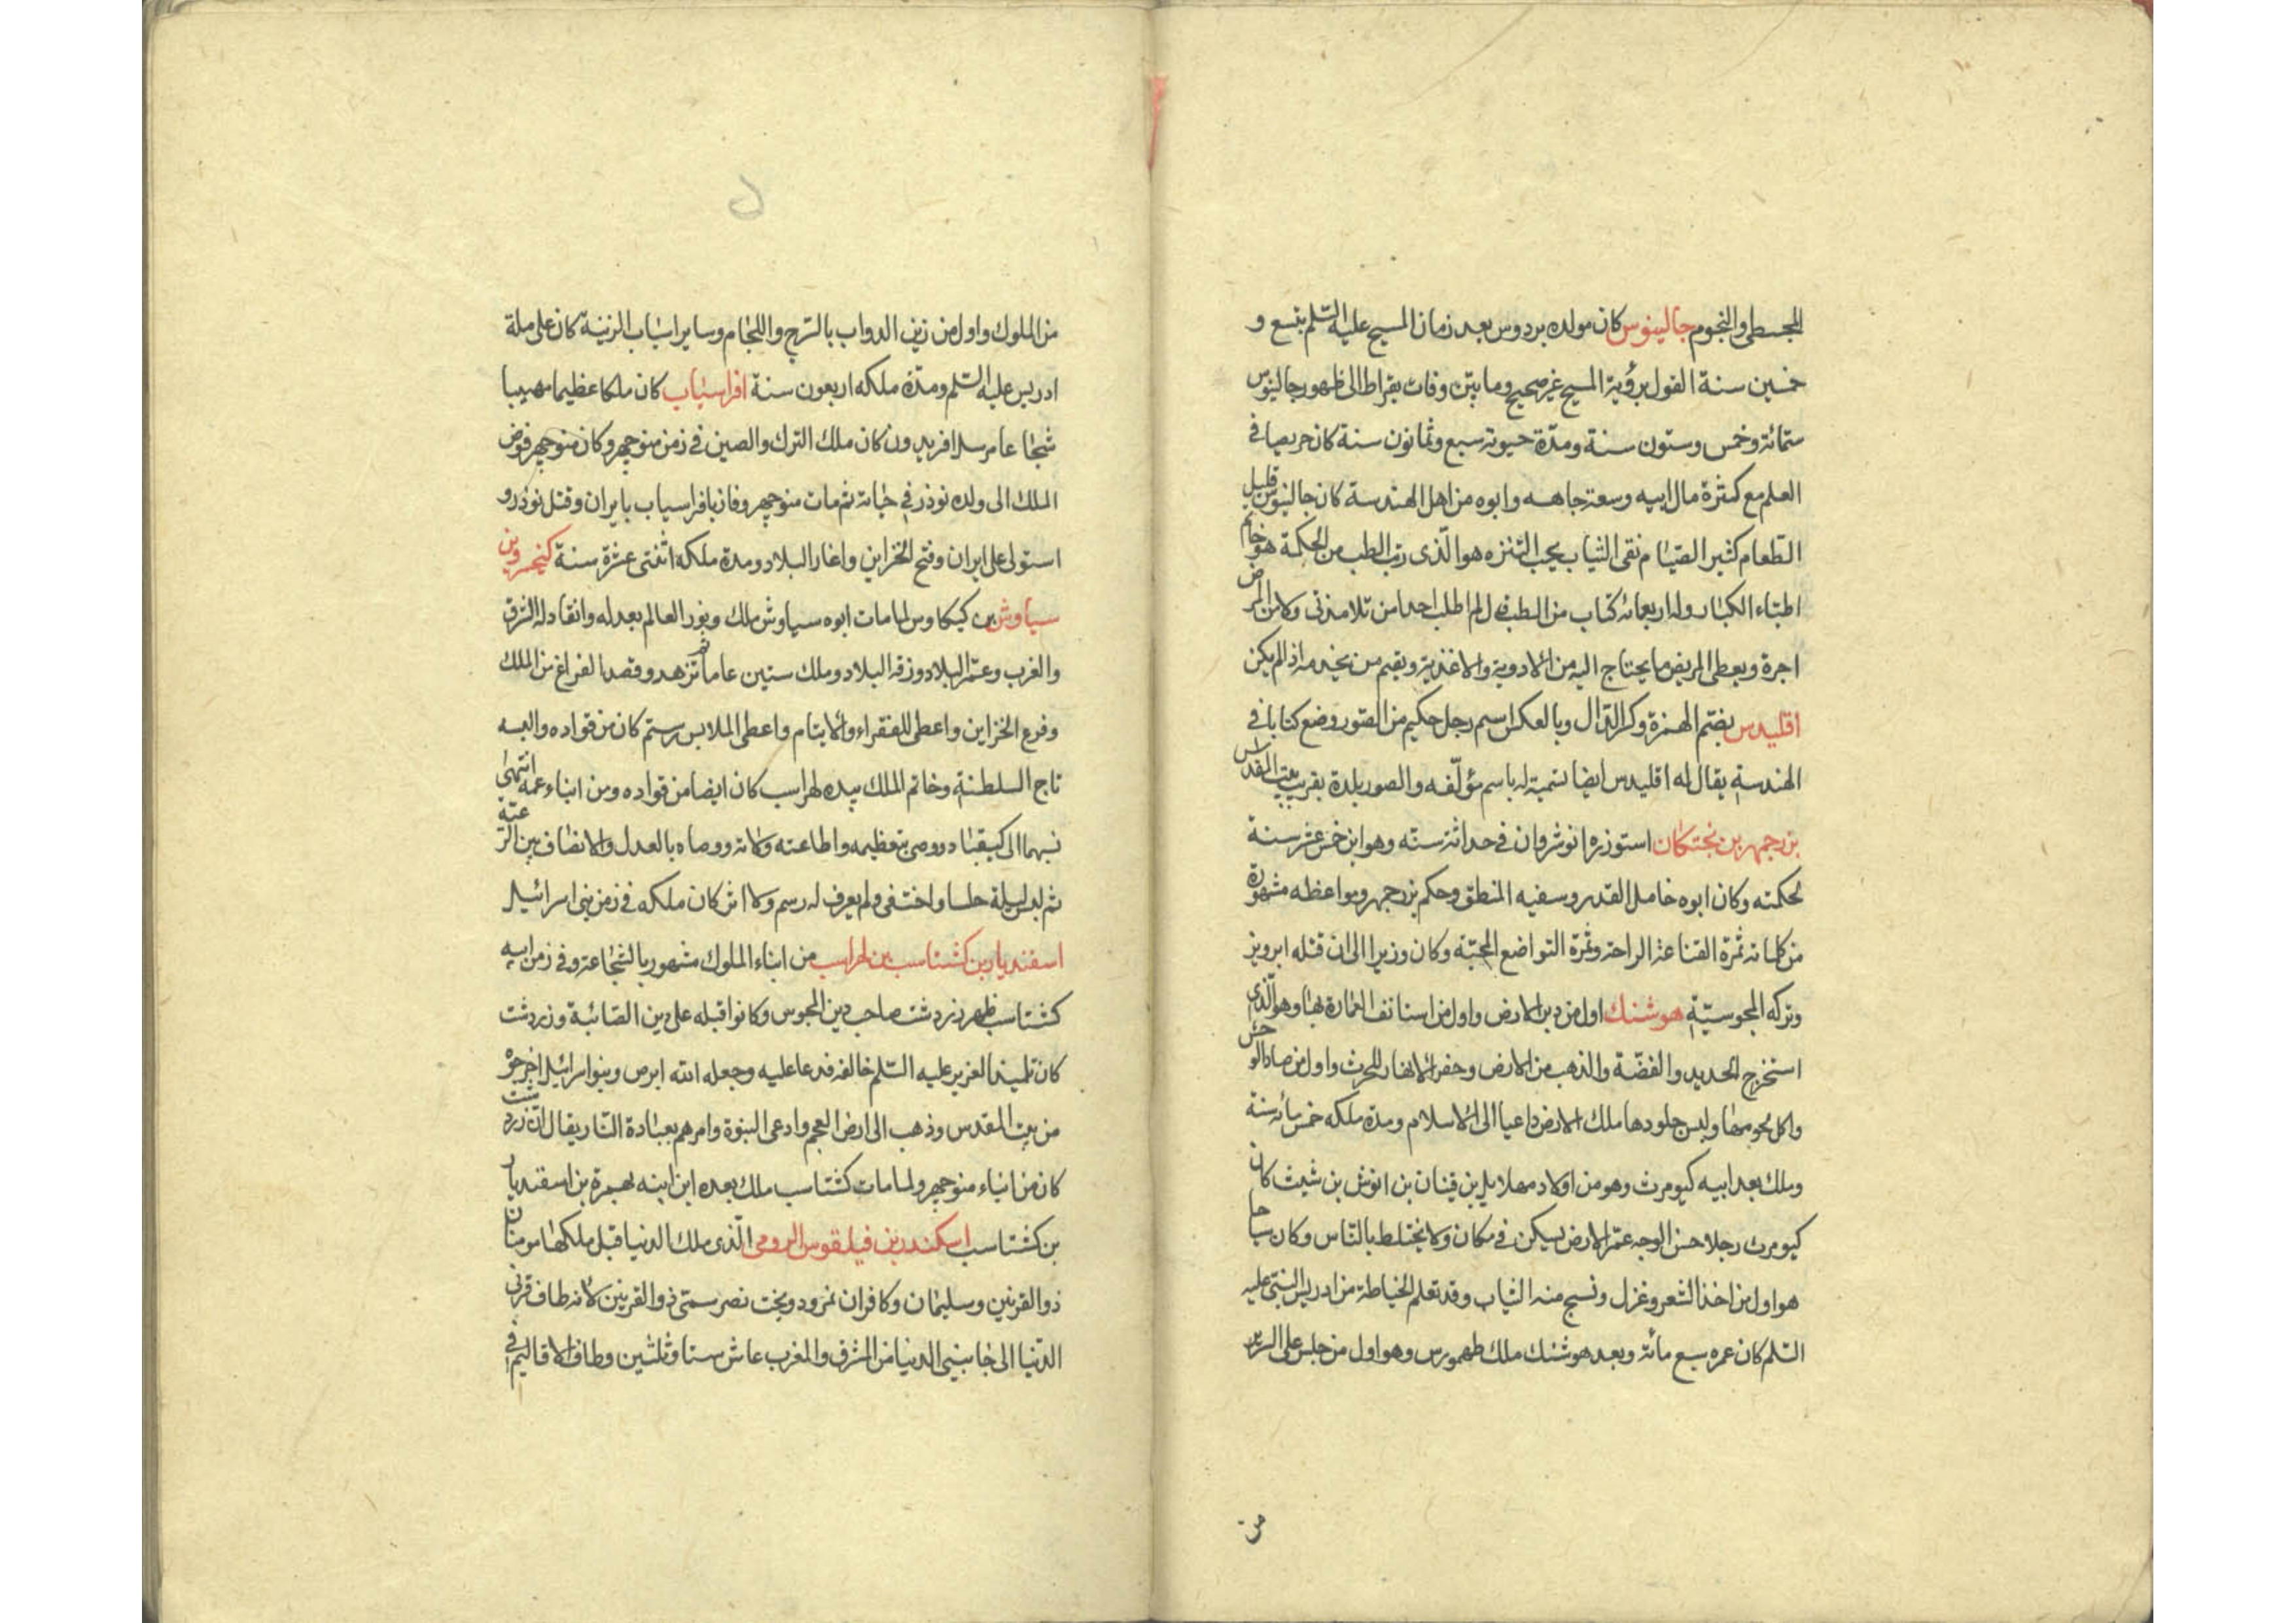 المجسطى والنجوم جالينوس كان مولده بردوس بعد زمان المسيح عليه السّلم بتسع و
خمسين سنة القول برؤية المسيح غير صحيح وما بين وفات بقراط الى ظهور جالينوس
ستمائة وخمس وستون سنة ومدّة حيوته سبع وثمانون سنة كان حريصا فى
العلم مع كثرة مال ابيه وسعة جاهه وابوه من اهل الهندسة كان جالينوس قليل
الطّعام كثير الصّيام نقى الثياب يحب التنزه هو الّذى رتب الطب من الحكمة هو خاتم
اطبّاء الكبار وله اربعمائة كتاب من الطب لم اطلب احدا من تلامذتى ولا من المرض
اجرة ويعطى المريض ما يحتاج اليه من الادوية والاغذية ويقيم من يخدمه اذا لم يكن
اقليدس بضم الهمزة وكسر الدّال وبالعكس اسم رجل حكيم من الصور وضع كتابا فى
الهندسة يقال له اقليدس ايضا تسمية له باسم مؤلّفه والصور بلدة بقرب بيت القدس
بزرجمهر بن بختكان استوزره انوشروان فى حداثة سنّه وهو ابن خمس عشر سنة
لحكمته وكان ابوه خامل القدر وسفيه المنطق وحكم بزرجمهر ومواعظه مشهورة
من كلماته ثمرة القناعة الراحة وثمرة التواضع المحبّة وكان وزيرا الى ان قتله ابرويز
وتركه المجوسيّة هوشنك اول من دبر الارض واول من استانف العمارة بها وهو الّذى
استخرج الحديد والفضّة والذهب من الارض وحفر الانهار للحرث واول من صاد الوحش
واكل لحومها ولبس جلودها ملك الارض داعيا الى الاسلام ومدة ملكه خمس مائه سنة
وملك بعد ابيه كيومرث وهو من اولاد مهلاييل بن قينان بن انوش بن شيث كان
كيومرث رجلا حسن الوجه عمّر الارض ليسكن فى مكان ولا يختلط بالنّاس وكان سياحا
هو اول من اخذ الشعر وغزل ونسج منه الثياب وقد تعلم الخياطة من ادريس النبىّ عليه
السّلم كان عمره سبع مائة وبعد هوشنك ملك طهمورس وهو اول من جلس على السرير
من
من الملوك واول من زين الدواب بالسّرج واللجام وساير اسباب الزينة كان على ملة
ادريس عليه السّلم ومدّة ملكه اربعون سنة افراسياب كان ملكا عظيما مهيبا
شجاعا من افريدون كان ملك الترك والصين فى زمن منوچهر وكان منوچهر فوض
الملك الى ولده نوذر فى حياته ثم مات منوچهر وفاز بافراسياب بايران وقتل نوذر و
استولى على ايران وفتح الخزاين واغار البلاد ومدة ملكه اثنتى عشرة سنة كيخسرو بن
سياوش بن كيكاوس لما مات ابوه سياوش ملك ونور العالم بعدله وانقاد له الشرق
والغرب وعمّر البلاد وزقه البلاد وملك ستين عاما ثم تزهد وقصد الفراغ من الملك
وفرع الخزاين واعطى للفقراء والايتام واعطى الملابس رستم كان من قواده والبسه
تاج السلطنة وخاتم الملك بيده لهراسب كان ايضا من قواده ومن ابناء عمه انتهى
نسبهما الى كيقباد ووصى بتعظيمه واطاعته ولاته ووصاه بالعدل والانصاف بين الرعيّة
ثم لبس ليلة حلسا واختفى ولم يعرف له رسم ولا اثر كان ملكه فى زمن بنى اسرائيل
اسفنديار بن كشتاسب بن لهراسب من ابناء الملوك مشهور بالشجاعة وفى زمن ابيه
كشتاسب ظهر زردشت صاحب دين المجوس وكانوا قبله على دين الصّائبة وزردشت
كان تلميذ العزير عليه السّلم خالفه فدعا عليه وجعله الله ابرص وبنو اسرائيل اخرجوه
من بيت المقدس وذهب الى ارض العجم وادعى النبوة وامرهم بعبادة النّار يقال ان زردشت
كان من ابناء منوچهر ولما مات كشتاسب ملك بعده ابن ابنه بهمرة بن اسفنديار
بن كشتاسب اسكندر بن فيلقوس الرومى الّذى ملك الدنيا قبل ملكها مومنان
ذوالقرنين وسليمان وكافران نمرود وبخت نصر سمّى ذوالقرنين لانه طاف قرنى
الدّنيا الى جانبيى الدنيا من المشرق والمغرب عاش ستا وثلثين وطاف الاقاليم فى